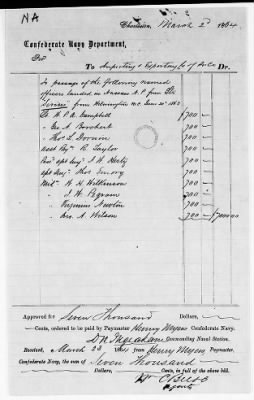 NA
Charleston, March 2 1864
Confederate Navy Department,
To Importing & Exporting Co of Dr.
To passage of the following named
officers landed on from Str
from Wilmington N.C. June
To A. P. A. Campbell 700 —
" Geo A. Borchert 700 —
" Thos L. Dornin 700 —
R. Taylor 700 —
Engr J. H. Herty 700 —
Engr Thos Emory 700 —
Mid'n H. H. Wilkinson 700 —
" J. W. Pegram 700 —
" Virginius Newton 700 —
" Jno. A. Wilson 700 —
Approved for Seven Thousand Dollars,
Cents, ordered to be paid by Paymaster Henry Myers Confederate Navy.
D N Ingraham Commanding Naval Station.
Received, March 22 from Henry Myers, Paymaster,
Confederate Navy, the sum of Seven Thousand
Dollars, Cents, in full of the above bill.